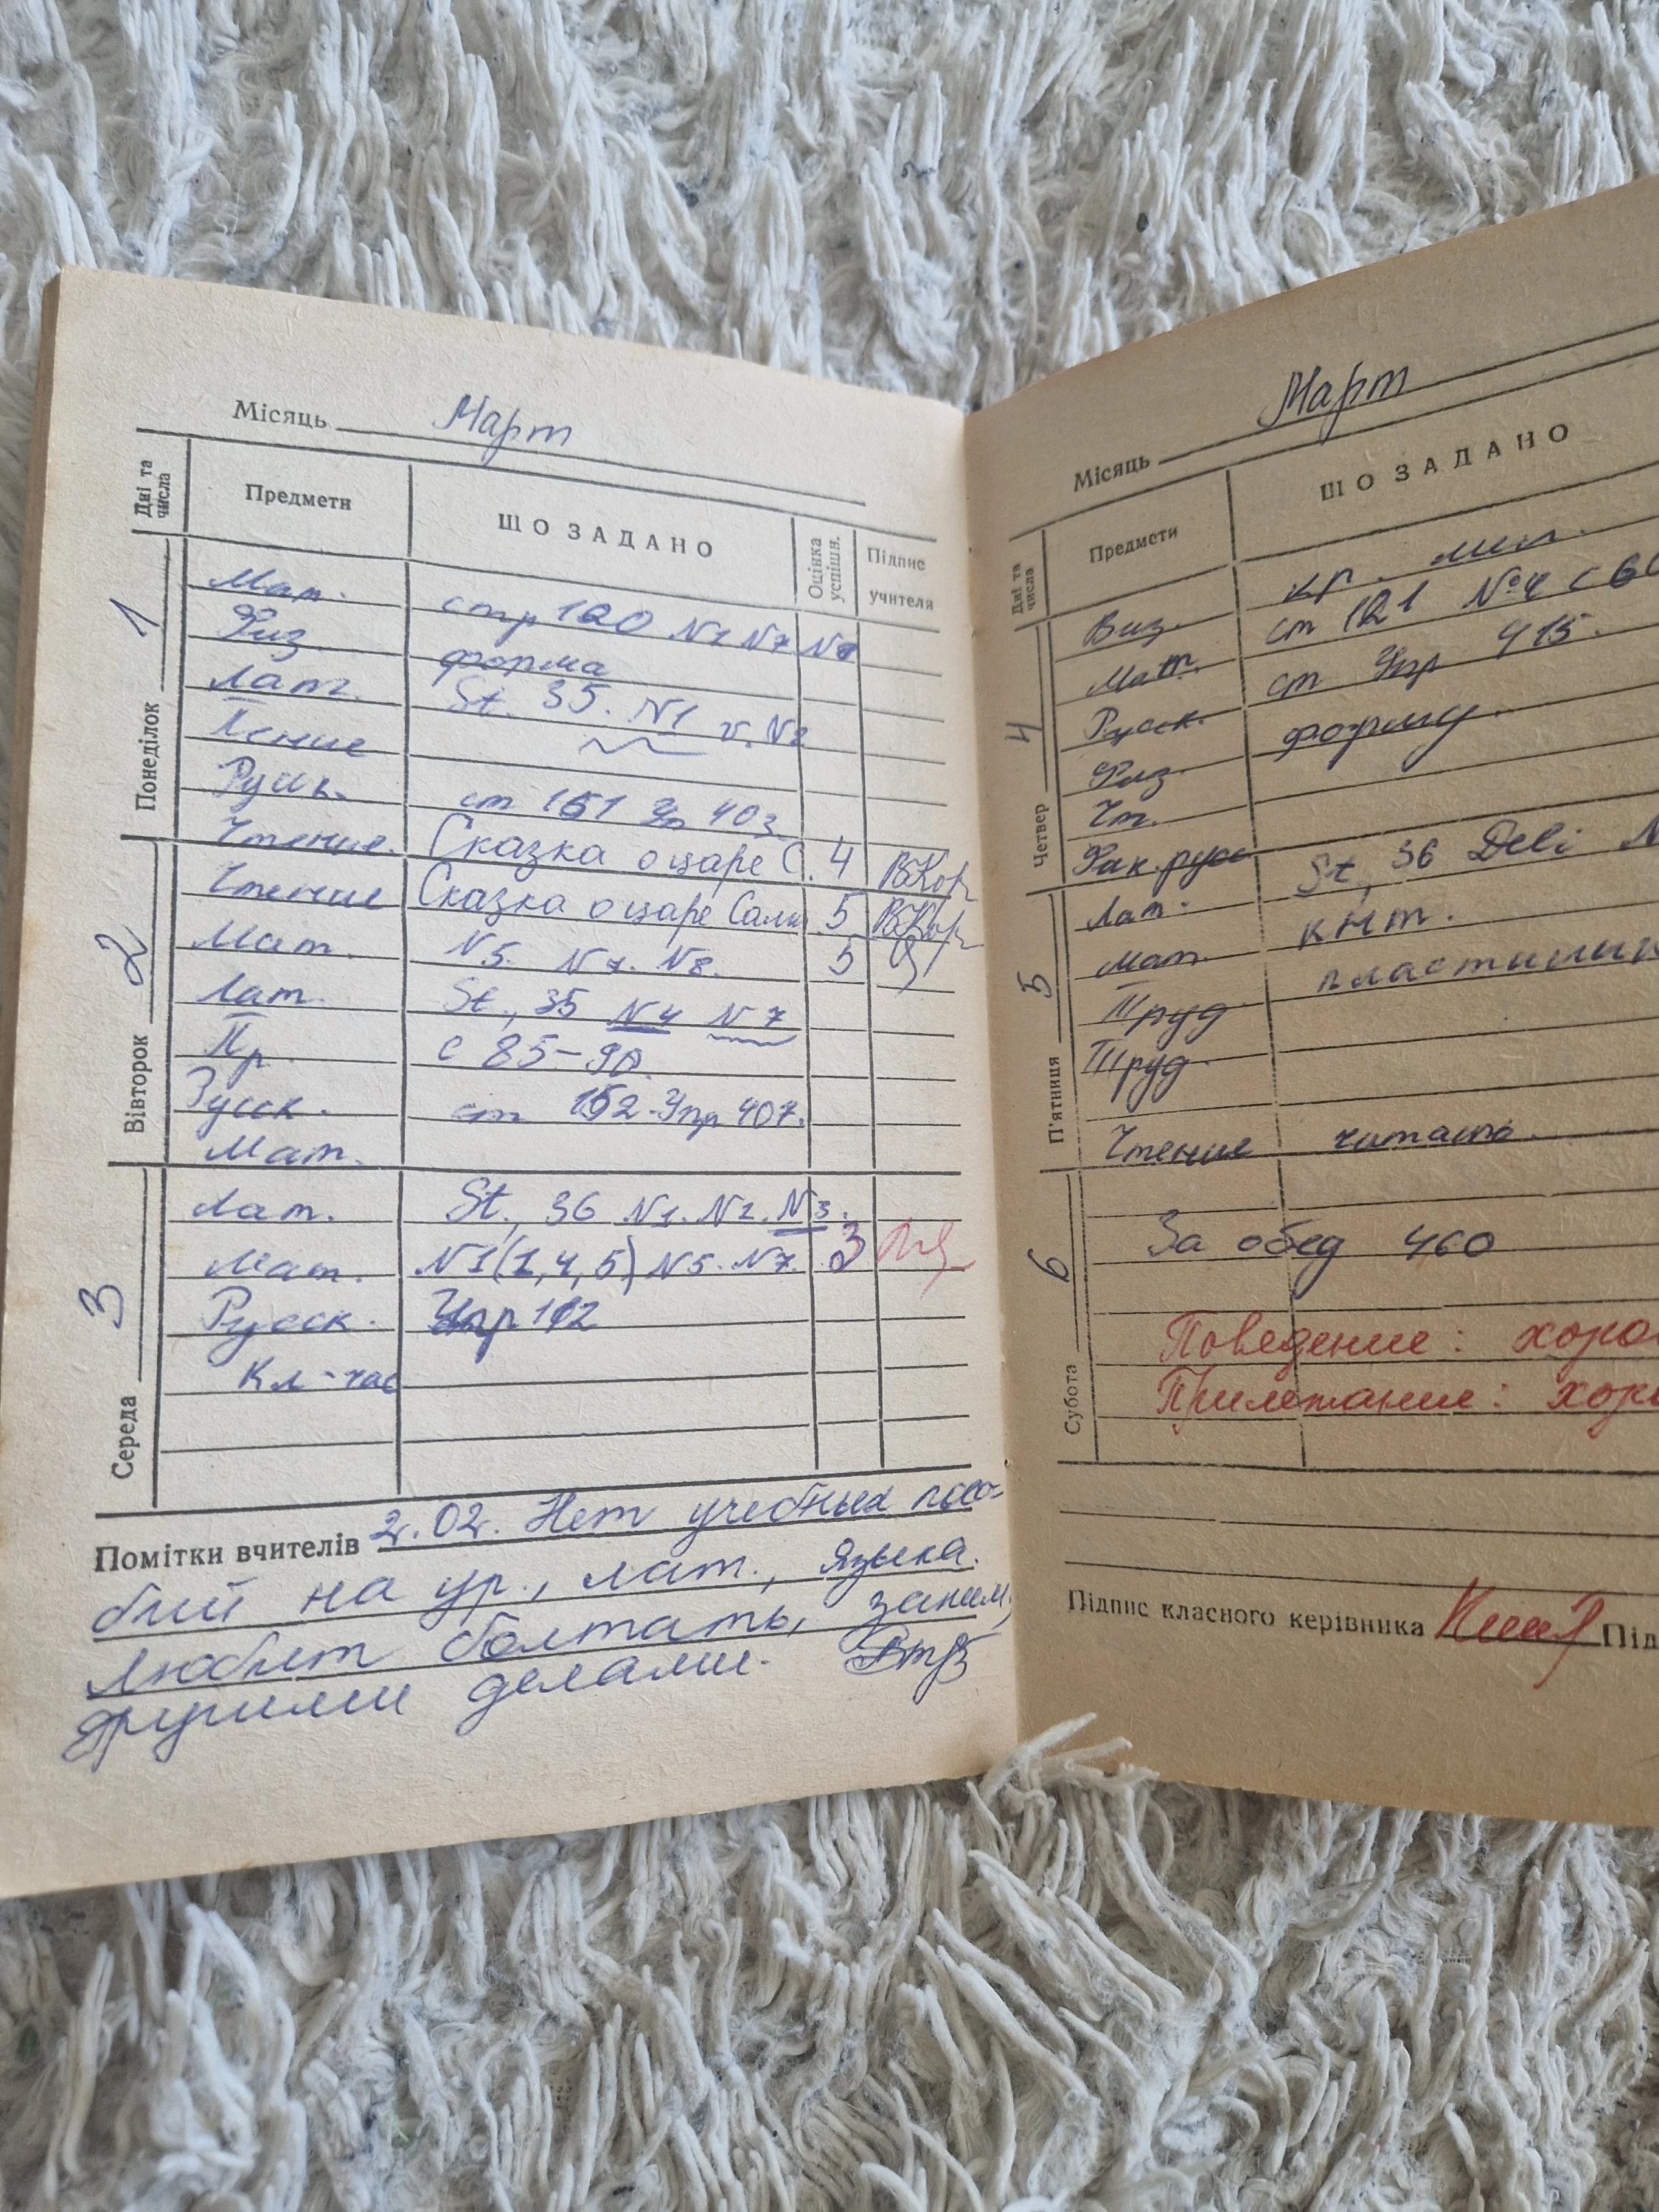 Місяць Март
Дні та числа Предмети ЩО ЗАДАНО Оцінка успішн. Підпис учителя
Понеділок 1
Мат. стр 120 N1 N7 N8
Физ. форма
Лат. St. 35. N1 v. N2
Пение
Русск. ст 151 403
Чтение. Сказка о царе С. 4
Вівторок 2
Чтение Сказка о царе Салт 5
Мат. N5. N7. N8. 5
Лат. St., 35 N4 N7
Пр. с 85-90.
Русск. ст 152. Упр 407.
Мат.
Середа 3
Лат. St., 36 N1. N2. N3.
Мат. N1(1,4,5) N5. N7. 3
Русск. Упр 112
Кл-час
Помітки вчителів 2.02. Нет учебных посо-
бий на ур., лат., языка.
Любит болтать, заним.
другими делами.
Місяць Март
Дні та числа Предмети ЩО ЗАДАНО
Четвер 4
Виз. кр. мел.
Мат. ст 121 №4 с 60
Русск. ст Упр 415.
Физ. форму.
Чт.
Фак. русс
П'ятниця 5
Лат. St, 36 Deli N
Мат. кнт.
Труд пластилин
Труд
Чтение читать.
Субота 6
За обед 460
Поведение: хоро
Прилежание: хоро
Підпис класного керівника Під